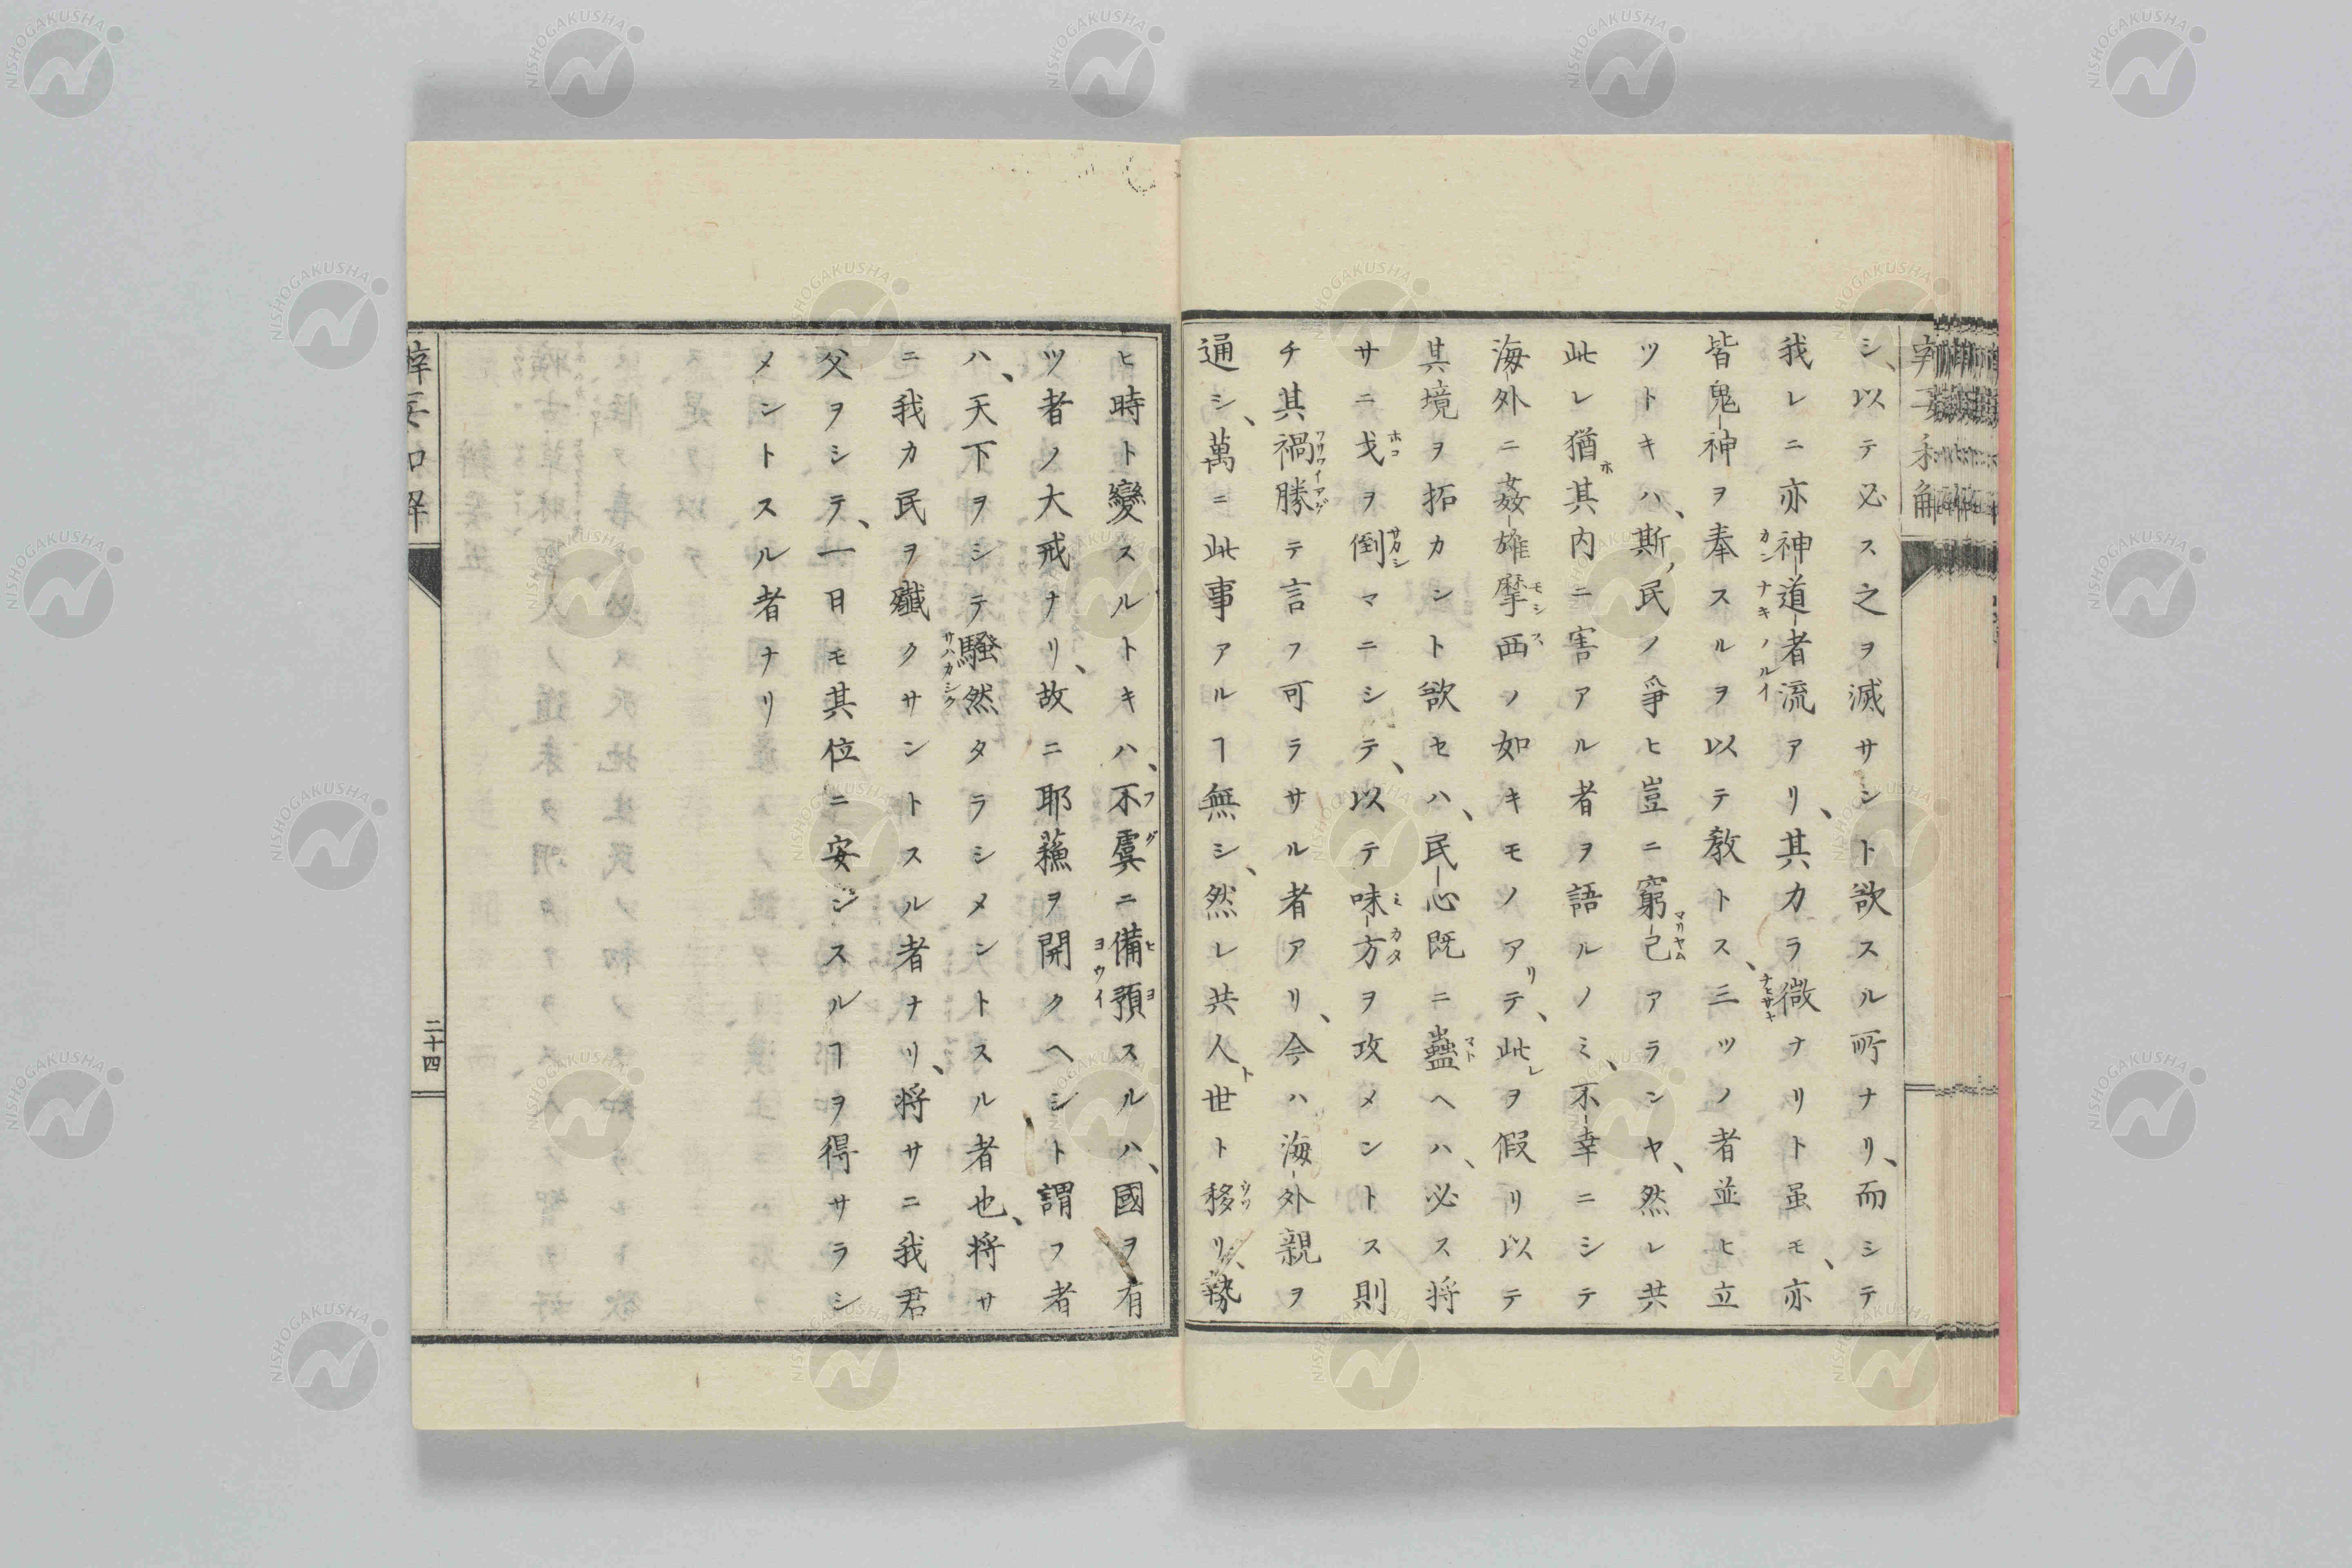 シ、以テ必ス之ヲ滅サシト欲スル所ナリ、而シテ
我レニ亦神道者流アリ、其力ラ微ナリト虽モ、亦
カンナキノルイ
ナヒサナ
皆鬼神ヲ奉スルヲ以テ教トス、三ツノ者並ヒ立
ツトキハ、斯ノ民ノ爭ヒ豈ニ窮已アランヤ、然レ共
マリヤム
此レ猶ホ其内ニ害アル者ヲ語ルノミ、不幸ニシテ
海外ニ姦雄摩西ノ如キモノアリテ、此レヲ假リ以テ
モシス
其境ヲ拓カント欲セハ、民心既ニ蠱ヘハ、必ス将
マト
サニ戈ヲ倒マニシテ、以テ味方ヲ攻メントス則
ホコ
サカシ
ミカタ
チ其禍勝テ言フ可ラサル者アリ、今ハ海外親ヲ
ワサワイアゲ
通シ、萬ニ此事アルヿ無シ、然レ共人ト世ト移リ、勢
ウツ
ヒ時ト變スルトキハ、不虞ニ備預スルハ、國ヲ有
フグ
ヒヨ
ヨウイ
ツ者ノ大戒ナリ、故ニ耶蘓ヲ開クヘシト謂フ者
ハ、天下ヲシテ騒然タラシメントスル者也、将サ
サハガシク
ニ我カ民ヲ殲クサントスル者ナリ、将サニ我君
父ヲシテ、一日モ其位ニ安ンスルヿヲ得サラシ
メントスル者ナリ
二十四
NISHOGAKUSHA